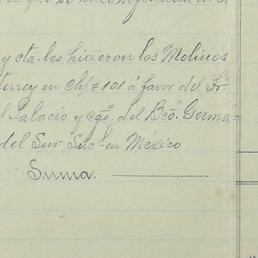 y cta. les hicieron los Molinos
terrey en Ch/ # 101 á favor del Sr.
l Palacio y cgo. del Bco. Germá-
del Sur Suc. en México
Suma.